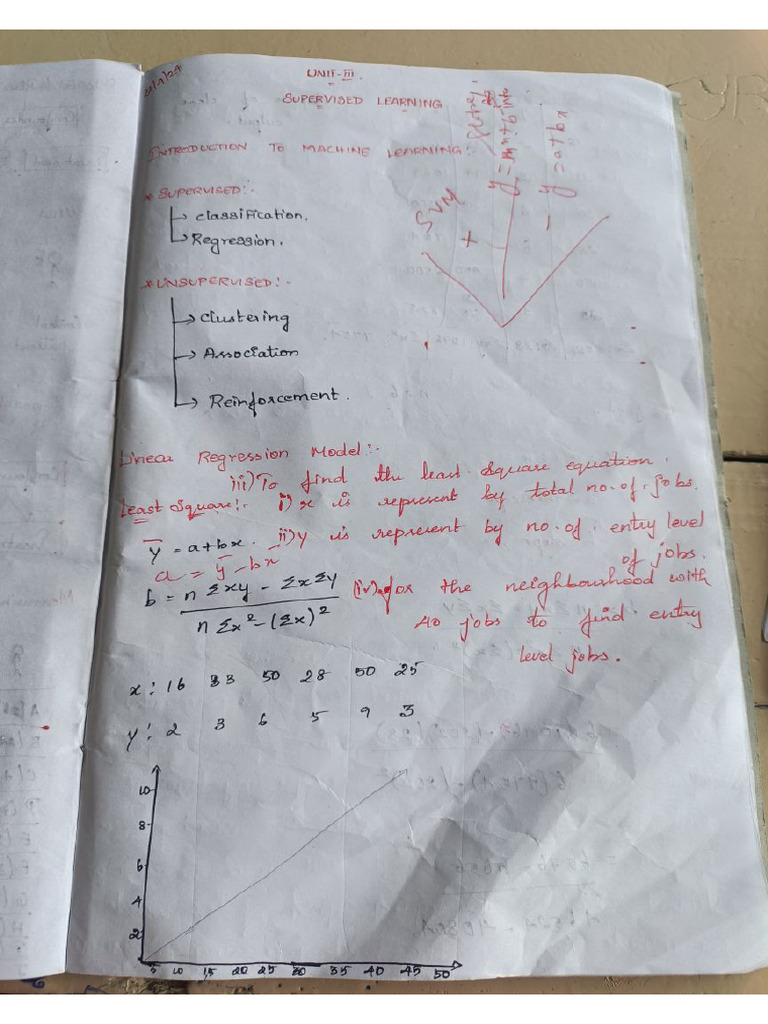 UNIT-III
SUPERVISED LEARNING
INTRODUCTION TO MACHINE LEARNING:-
* SUPERVISED:-
→ classification.
→ Regression.
* UNSUPERVISED:-
→ clustering
→ Association
→ Reinforcement.
SVM
+
-
y = mx+b
y = a+bx
Linear Regression Model:-
iii) To find the least square equation.
Least Square:- i) x is represent by total no. of. jobs.
y̅ = a+bx. ii) y is represent by no. of. entry level of jobs.
a = y̅ - bx̅
b = nΣxy - ΣxΣy / nΣx² - (Σx)²
(iv) for the neighbourhood with
40 jobs to find entry
level jobs.
x: 16 33 50 28 50 25
y: 2 3 6 5 9 3
10
8
6
4
2
5 10 15 20 25 30 35 40 45 50